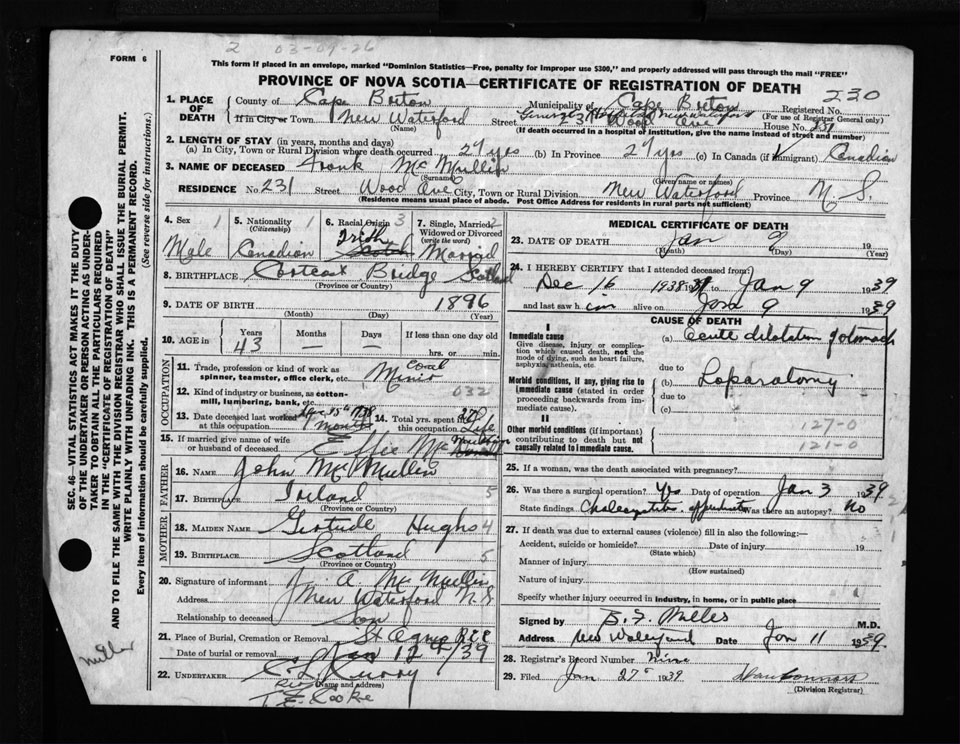 2 03-09-26
FORM 6
This form if placed in an envelope, marked "Dominion Statistics—Free, penalty for improper use $300," and properly addressed will pass through the mail "FREE"
PROVINCE OF NOVA SCOTIA—CERTIFICATE OF REGISTRATION OF DEATH
230
1. PLACE OF DEATH County of Cape Breton Municipality of Cape Breton Registered No.
(For use of Registrar General only)
If in City or Town New Waterford Street 231 Wood Ave House No. 231
(Name) (If death occurred in a hospital or institution, give the name instead of street and number)
2. LENGTH OF STAY (in years, months and days)
(a) In City, Town or Rural Division where death occurred 27 yrs (b) In Province 27 yrs (c) In Canada (if immigrant) Canadian
3. NAME OF DECEASED Frank McMullin
(Surname) (Given name or names)
RESIDENCE No. 231 Street Wood Ave City, Town or Rural Division New Waterford Province N. S.
(Residence means usual place of abode. Post Office Address for residents in rural parts not sufficient)
4. Sex 1 5. Nationality 1 (Citizenship) 6. Racial Origin 3 7. Single, Married, Widowed or Divorced 2 (write the word)
Male Canadian Irish Scotch Married
8. BIRTHPLACE Bridge Scotland
(Province or Country)
9. DATE OF BIRTH 1896
(Month) (Day) (Year)
10. AGE in Years Months Days If less than one day old
43 — — hrs. or min.
OCCUPATION
11. Trade, profession or kind of work as spinner, teamster, office clerk, etc. Coal Miner
12. Kind of industry or business, as cotton-mill, lumbering, bank, etc. 032
13. Date deceased last worked at this occupation 1938 1 month 14. Total yrs. spent at this occup'n. Life
15. If married give name of wife or husband of deceased Effie McMullin
FATHER
16. NAME John McMullin
17. BIRTHPLACE Ireland 5
(Province or Country)
MOTHER
18. MAIDEN NAME Gertude Hughs 4
19. BIRTHPLACE Scotland 5
(Province or Country)
20. Signature of informant J. A. McMullin
Address New Waterford N. S.
Relationship to deceased Son
21. Place of Burial, Cremation or Removal St Agnes
Date of burial or removal Jan 12 /39
22. UNDERTAKER Curry
(Name and address)
T. E. Cooke
MEDICAL CERTIFICATE OF DEATH
23. DATE OF DEATH Jan 9 19
(Month) (Day) (Year)
24. I HEREBY CERTIFY that I attended deceased from:
Dec 16 1938 to Jan 9 1939
and last saw him alive on Jan 9 1939
CAUSE OF DEATH
I
Immediate cause (a) acute dilatation of stomach
Give disease, injury or complication which caused death, not the mode of dying, such as heart failure, asphyxia, asthenia, etc.
due to
Morbid conditions, if any, giving rise to immediate cause (stated in order proceeding backwards from immediate cause). (b) Laparatomy
due to
(c)
II
Other morbid conditions (if important) contributing to death but not causally related to immediate cause.
127-0
121-0
25. If a woman, was the death associated with pregnancy?
26. Was there a surgical operation? Yes Date of operation Jan 3 1939
State findings Was there an autopsy? No
27. If death was due to external causes (violence) fill in also the following:—
Accident, suicide or homicide? Date of injury 19
(State which)
Manner of injury
(How sustained)
Nature of injury
Specify whether injury occurred in industry, in home, or in public place
Signed by B. F. Miller M.D.
Address New Waterford Date Jan 11 1939
28. Registrar's Record Number nine
29. Filed Jan 27 1939 Dan Connors
(Division Registrar)
SEC. 46—VITAL STATISTICS ACT MAKES IT THE DUTY OF THE UNDERTAKER OR PERSON ACTING AS UNDERTAKER TO OBTAIN ALL THE PARTICULARS REQUIRED IN THE "CERTIFICATE OF REGISTRATION OF DEATH" AND TO FILE THE SAME WITH THE DIVISION REGISTRAR WHO SHALL ISSUE THE BURIAL PERMIT.
WRITE PLAINLY WITH UNFADING INK. THIS IS A PERMANENT RECORD.
Every item of information should be carefully supplied. (See reverse side for instructions.)
Miller